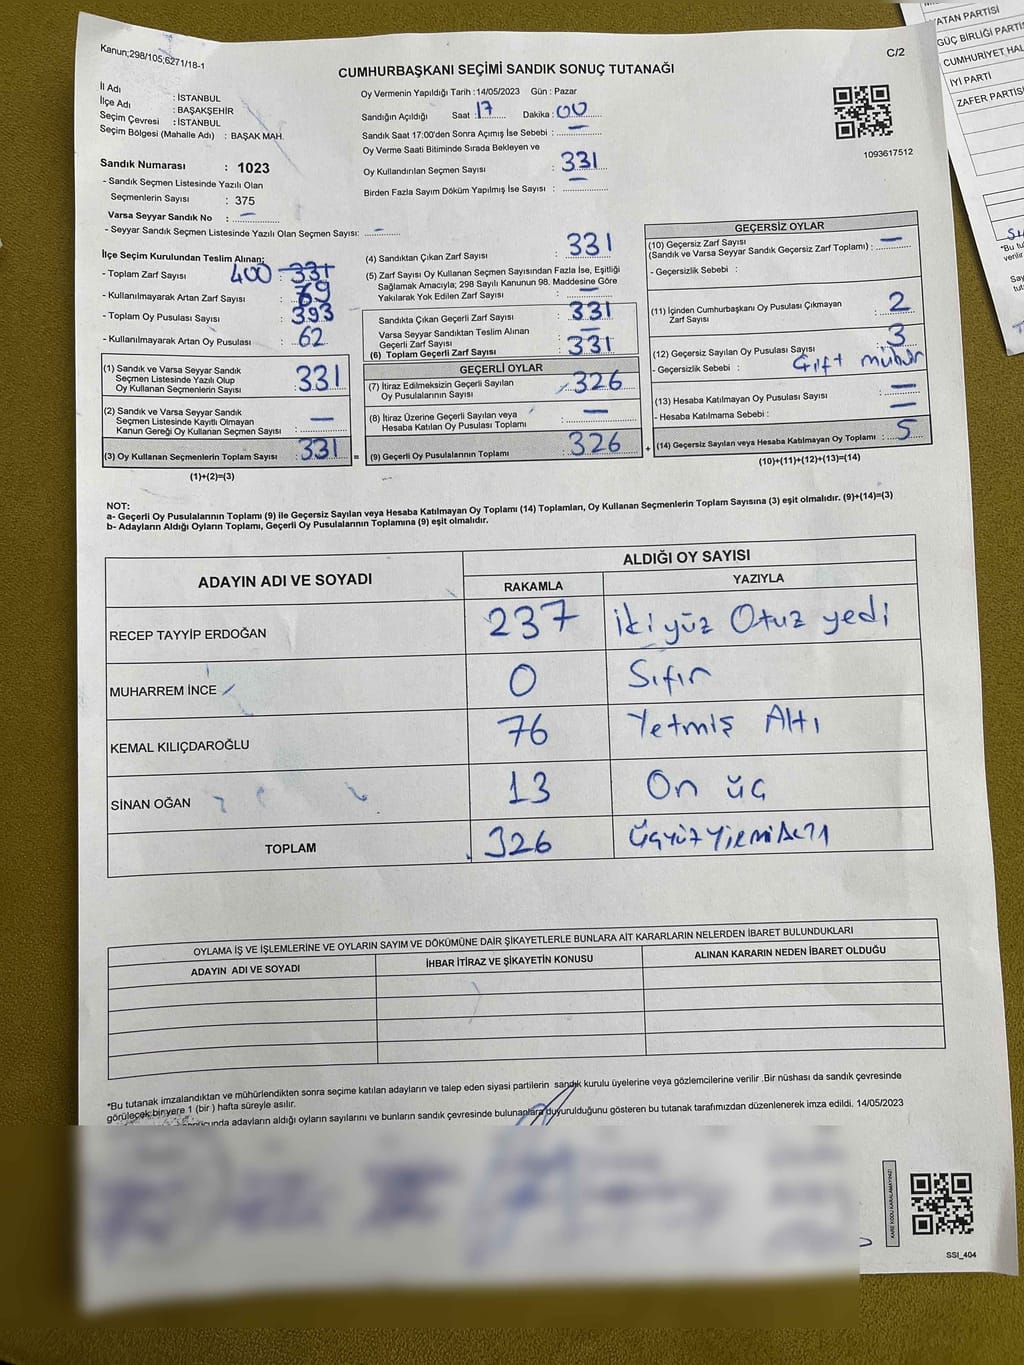 Kanun;298/105;6271/18-1
C/2
CUMHURBAŞKANI SEÇİMİ SANDIK SONUÇ TUTANAĞI
İl Adı : İSTANBUL
İlçe Adı : BAŞAKŞEHİR
Seçim Çevresi : İSTANBUL
Seçim Bölgesi (Mahalle Adı) : BAŞAK MAH.
Sandık Numarası : 1023
- Sandık Seçmen Listesinde Yazılı Olan
Seçmenlerin Sayısı : 375
Varsa Seyyar Sandık No : —
- Seyyar Sandık Seçmen Listesinde Yazılı Olan Seçmen Sayısı: —
Oy Vermenin Yapıldığı Tarih :14/05/2023 Gün : Pazar
Sandığın Açıldığı Saat : 17 Dakika : 00
Sandık Saat 17:00'den Sonra Açımış İse Sebebi : —
Oy Verme Saati Bitiminde Sırada Bekleyen ve
Oy Kullandırılan Seçmen Sayısı : 331
Birden Fazla Sayım Döküm Yapılmış İse Sayısı : —
1093617512
İlçe Seçim Kurulundan Teslim Alınan;
- Toplam Zarf Sayısı 400 : 331
- Kullanılmayarak Artan Zarf Sayısı : 69
- Toplam Oy Pusulası Sayısı : 393
- Kullanılmayarak Artan Oy Pusulası : 62
(1) Sandık ve Varsa Seyyar Sandık
Seçmen Listesinde Yazılı Olup
Oy Kullanan Seçmenlerin Sayısı : 331
(2) Sandık ve Varsa Seyyar Sandık
Seçmen Listesinde Kayıtlı Olmayan
Kanun Gereği Oy Kullanan Seçmen Sayısı : —
(3) Oy Kullanan Seçmenlerin Toplam Sayısı : 331
(1)+(2)=(3)
(4) Sandıktan Çıkan Zarf Sayısı : 331
(5) Zarf Sayısı Oy Kullanan Seçmen Sayısından Fazla İse, Eşitliği
Sağlamak Amacıyla; 298 Sayılı Kanunun 98. Maddesine Göre
Yakılarak Yok Edilen Zarf Sayısı : —
Sandıkta Çıkan Geçerli Zarf Sayısı : 331
Varsa Seyyar Sandıktan Teslim Alınan
Geçerli Zarf Sayısı : —
(6) Toplam Geçerli Zarf Sayısı : 331
GEÇERLİ OYLAR
(7) İtiraz Edilmeksizin Geçerli Sayılan
Oy Pusulalarının Sayısı : 326
(8) İtiraz Üzerine Geçerli Sayılan veya
Hesaba Katılan Oy Pusulası Toplamı : —
(9) Geçerli Oy Pusulalarının Toplamı : 326
GEÇERSİZ OYLAR
(10) Geçersiz Zarf Sayısı
(Sandık ve Varsa Seyyar Sandık Geçersiz Zarf Toplamı) : —
- Geçersizlik Sebebi :
(11) İçinden Cumhurbaşkanı Oy Pusulası Çıkmayan
Zarf Sayısı : 2
(12) Geçersiz Sayılan Oy Pusulası Sayısı : 3
- Geçersizlik Sebebi : Çift mühür
(13) Hesaba Katılmayan Oy Pusulası Sayısı : —
- Hesaba Katılmama Sebebi : —
(14) Geçersiz Sayılan veya Hesaba Katılmayan Oy Toplamı : 5
(10)+(11)+(12)+(13)=(14)
NOT:
a- Geçerli Oy Pusulalarının Toplamı (9) ile Geçersiz Sayılan veya Hesaba Katılmayan Oy Toplamı (14) Toplamları, Oy Kullanan Seçmenlerin Toplam Sayısına (3) eşit olmalıdır. (9)+(14)=(3)
b- Adayların Aldığı Oyların Toplamı, Geçerli Oy Pusulalarının Toplamına (9) eşit olmalıdır.
ADAYIN ADI VE SOYADI ALDIĞI OY SAYISI
RAKAMLA YAZIYLA
RECEP TAYYİP ERDOĞAN 237 İki yüz Otuz yedi
MUHARREM İNCE 0 Sıfır
KEMAL KILIÇDAROĞLU 76 Yetmiş Altı
SİNAN OĞAN 13 On üç
TOPLAM 326 üçyüz Yirmi Altı
OYLAMA İŞ VE İŞLEMLERİNE VE OYLARIN SAYIM VE DÖKÜMÜNE DAİR ŞİKAYETLERLE BUNLARA AİT KARARLARIN NELERDEN İBARET BULUNDUKLARI
ADAYIN ADI VE SOYADI İHBAR İTİRAZ VE ŞİKAYETİN KONUSU ALINAN KARARIN NEDEN İBARET OLDUĞU
*Bu tutanak imzalandıktan ve mühürlendikten sonra seçime katılan adayların ve talep eden siyasi partilerin sandık kurulu üyelerine veya gözlemcilerine verilir .Bir nüshası da sandık çevresinde
görülecek bir yere 1 (bir ) hafta süreyle asılır.
adayların aldığı oyların sayılarını ve bunların sandık çevresinde bulunanlara duyurulduğunu gösteren bu tutanak tarafımızdan düzenlenerek imza edildi. 14/05/2023
KARE KODU KARALAMAYINIZ!
SSI_404
VATAN PARTİSİ
GÜÇ BİRLİĞİ PARTİSİ
CUMHURİYET HAL
İYİ PARTİ
ZAFER PARTİSİ
*Bu tu
verilir
Say